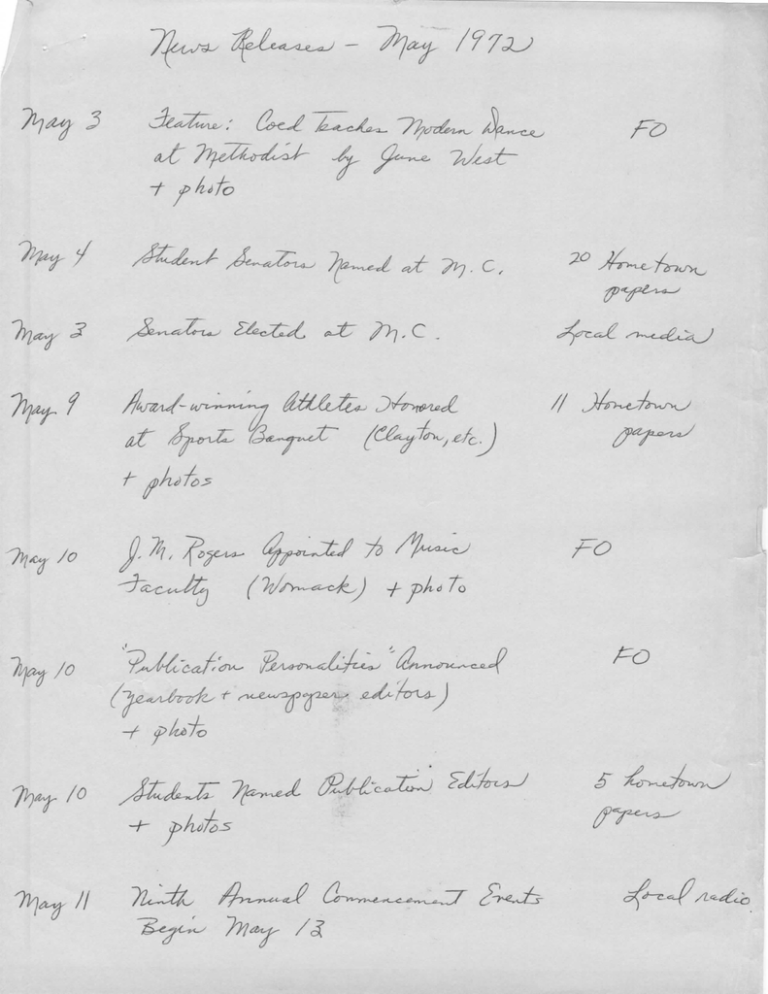 News Releases - May 1972
May 3 Feature: Coed Teaches Modern Dance FO
at Methodist by June West
+ photo
May 4 Student Senators Named at M.C. 20 Hometown
papers
May 3 Senators Elected at M.C. Local media
May 9 Award-winning Athletes Honored 11 Hometown
at Sports Banquet (Clayton, etc.) papers
+ photos
May 10 J.M. Rogers Appointed to Music FO
Faculty (Womack) + photo
May 10 "Publication Personalities" Announced FO
(yearbook + newspaper editors)
+ photo
May 10 Students Named Publication Editors 5 hometown
+ photos papers
May 11 Ninth Annual Commencement Events Local radio
Begin May 13